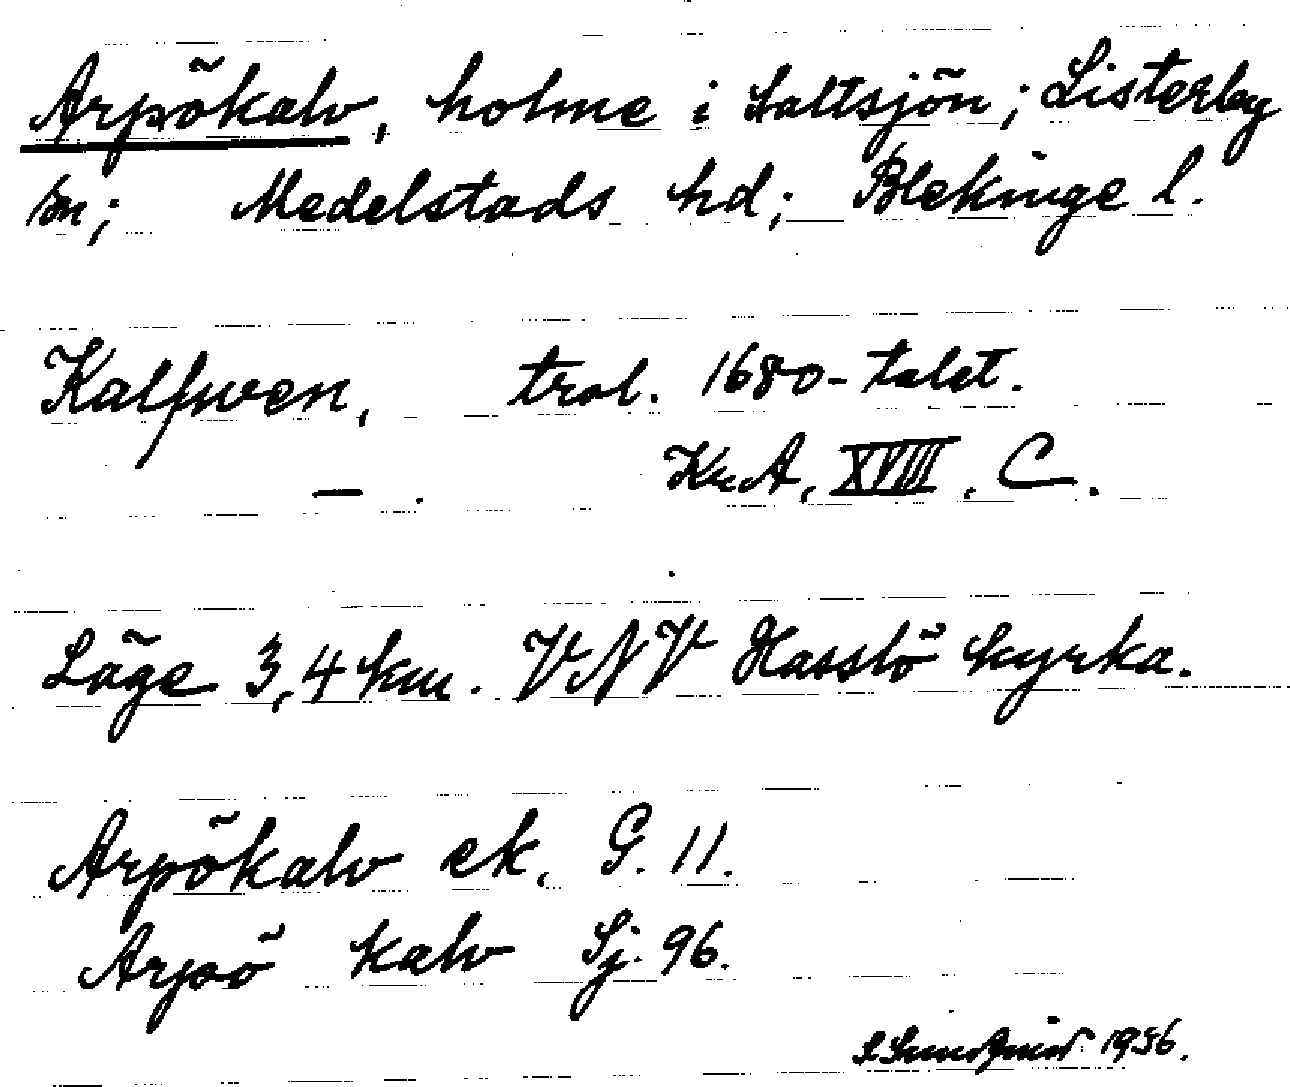 Arpökalv, holme i Saltsjön; Listerby
sn; Medelstads hd; Blekinge l.
Kalfwen, trol. 1680-talet.
— . KrA, XVIII, C.
Läge 3,4 km. VNV Hasslö kyrka.
Arpökalv ek. G. 11.
Arpö kalv Sj. 96.
1956.